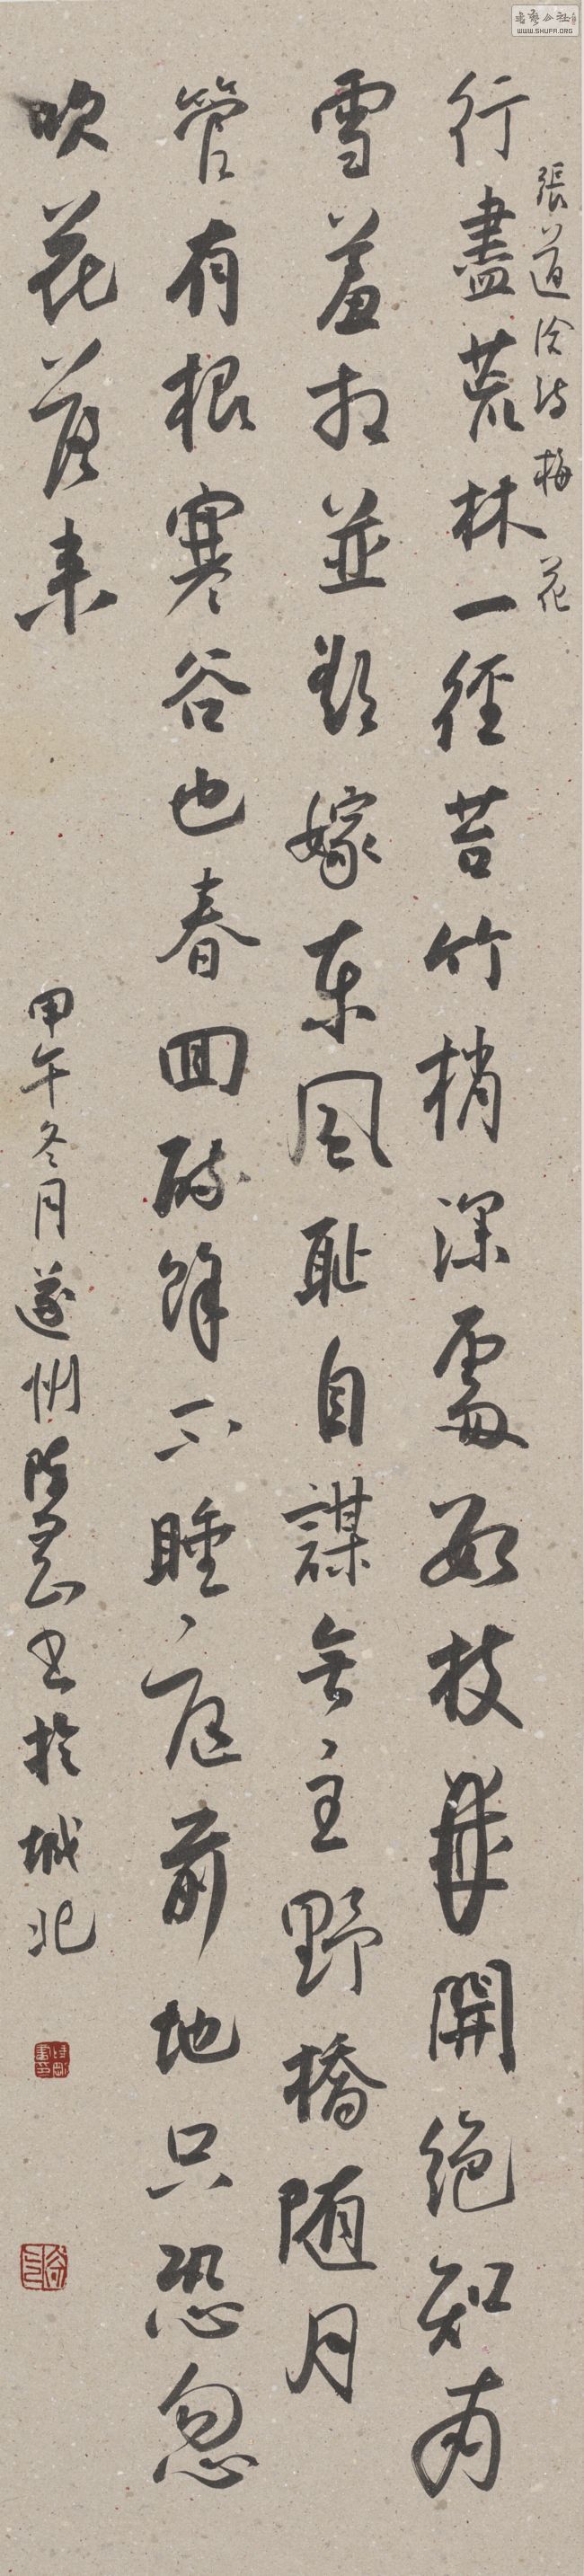 張道洽詩梅花
行盡荒林一徑苔竹梢深處數枝開絕知有
雪羞相並欲嫁東風耻自謀無主野橋随月
管有根寒谷也春囬醉餘不睡庭前地只恐忽
吹花落来
甲午冬月遂州陈书於城北
书艺公社
WWW.SHUFA.ORG